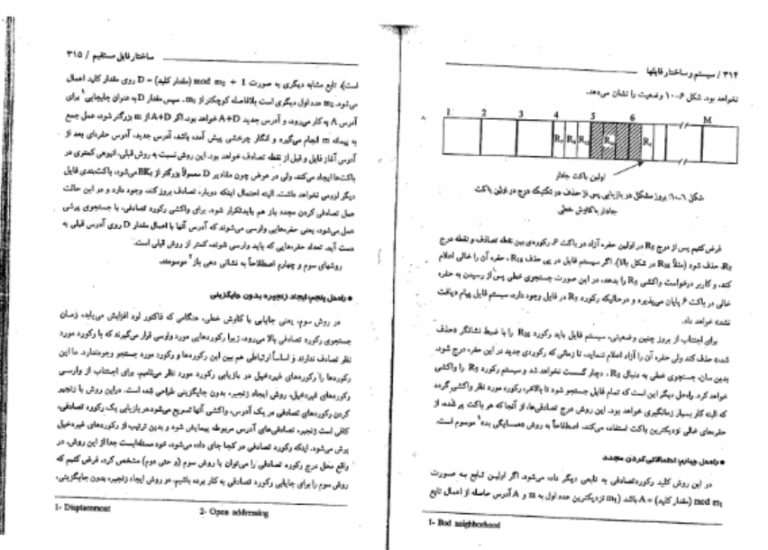 ۳۱۴ / سیستم و ساختار فایلها
نخواهد بود. شکل ۶-۱۰ وضعیت را نشان می‌دهد.
1 2 3 4 5 6 M
اولین باکت جادار
شکل ۶-۱۰: بروز مشکل در بازیابی پس از حذف در تکنیک درج در اولین باکت
جادار با کاوش خطی
فرض کنیم پس از درج R₅ در اولین حفره آزاد در باکت ۶، رکوردی بین نقطه تصادف و نقطه درج
R₅، حذف شود (مثلاً R₁₈ در شکل بالا). اگر سیستم فایل در پی حذف R₁₈، حفره آن را خالی اعلام
کند، و کاربر درخواست واکشی R₅ را بدهد، در این صورت جستجوی خطی پس از رسیدن به حفره
خالی در باکت ۶ پایان می‌پذیرد و درحالیکه رکورد R₅ در فایل وجود دارد، سیستم فایل پیام «یافت
نشد» خواهد داد.
برای اجتناب از بروز چنین وضعیتی، سیستم فایل باید رکورد R₁₈ را با ضبط نشانگر «حذف
شد» حذف کند ولی حفره آن را آزاد اعلام ننماید، تا زمانی که رکوردی جدید در این حفره درج شود.
بدین سان، جستجوی خطی به دنبال R₅، دچار گسست نخواهد شد و سیستم رکورد R₅ را واکشی
خواهد کرد. راه‌حل دیگر این است که تمام فایل جستجو شود تا بالاخره رکورد مورد نظر واکشی گردد
که البته کار بسیار زمانگیری خواهد بود. این روش درج تصادفی‌ها، از آنجا که هر باکت پر شده، از
حفره‌های خالی نزدیکترین باکت استفاده می‌کند، اصطلاحاً به روش «همسایگی بد»¹ موسوم است.
● راه‌حل چهارم: تصادفی کردن مجدد
در این روش کلید رکورد تصادفی به تابعی دیگر داده می‌شود. اگر اولین تابع به صورت
mod m₁ (مقدار کلید) = A باشد (m₁ نزدیکترین عدد اول به m و A آدرس حاصله از اعمال تابع
1- Bad neighborhood
ساختار فایل مستقیم / ۳۱۵
است)، تابع مشابه دیگری به صورت D = (مقدار کلید) mod m₂ + 1 روی مقدار کلید اعمال
می‌شود. m₂ عدد اول دیگری است بلافاصله کوچکتر از m₁. سپس مقدار D به عنوان جابجایی¹ برای
آدرس A به کار می‌رود، و آدرس جدید A+D خواهد بود. اگر A+D از m بزرگتر شود، عمل جمع
به پیمانه m انجام می‌گیرد و انگار چرخشی پیش آمده باشد، آدرس جدید، آدرس حفره‌ای بعد از
آدرس آغاز فایل و قبل از نقطه تصادف خواهد بود. این روش نسبت به روش قبلی، انبوهی کمتری در
باکت‌ها ایجاد می‌کند. ولی در عوض چون مقادیر D معمولاً بزرگتر از BK می‌شود، باکت‌بندی فایل
دیگر لزومی نخواهد داشت. البته احتمال اینکه دوباره تصادف بروز کند، وجود دارد و در این حالت
عمل تصادفی کردن مجدد باز هم باید تکرار شود. برای واکشی رکورد تصادفی، با جستجوی پرشی
عمل می‌شود، یعنی حفره‌هایی وارسی می‌شوند که آدرس آنها با اعمال مقدار D روی آدرس قبلی به
دست آید. تعداد حفره‌هایی که باید وارسی شوند، کمتر از روش قبلی است.
روشهای سوم و چهارم اصطلاحاً به نشانی دهی باز² موسومند.
● راه‌حل پنجم: ایجاد زنجیره بدون جایگزینی
در روش سوم، یعنی جایابی با کاوش خطی، هنگامی که فاکتور لود افزایش می‌یابد، زمان
جستجوی رکورد تصادفی بالا می‌رود، زیرا رکوردهایی مورد وارسی قرار می‌گیرند که با رکورد مورد
نظر تصادف ندارند و اساساً ارتباطی هم بین این رکوردها و رکورد مورد جستجو وجود ندارد. ما این
رکوردها را رکوردهای غیردخیل در بازیابی رکورد مورد نظر می‌نامیم. برای اجتناب از وارسی
رکوردهای غیردخیل، روش ایجاد زنجیر، بدون جایگزینی طراحی شده است. دراین روش با زنجیر
کردن رکوردهای تصادفی در یک آدرس، واکشی آنها تسریع می‌شود. در بازیابی یک رکورد تصادفی،
کافی است زنجیر، تصادفی‌های آدرس مربوطه پیمایش شود و بدین ترتیب از رکوردهای غیردخیل
پرش می‌شود. اینکه رکورد تصادفی در کجا جای داده می‌شود، خود مسئله‌ایست جدا از این روش. در
واقع محل درج رکورد تصادفی را می‌توان با روش سوم (و حتی دوم) مشخص کرد. فرض کنیم که
روش سوم را برای جایابی رکورد تصادفی به کار برده باشیم. در روش ایجاد زنجیره بدون جایگزینی،
1- Displacement 2- Open addressing